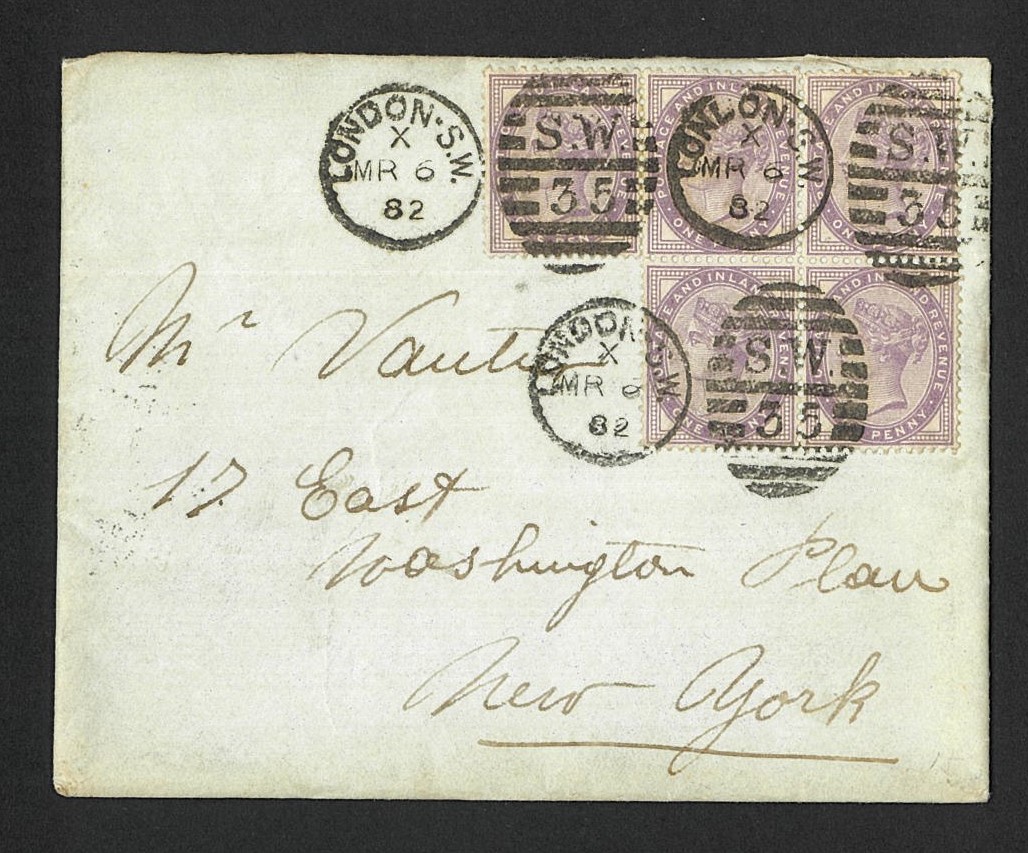 LONDON·S.W.
X
MR 6
82
S.W.
35
POSTAGE AND INLAND REVENUE
ONE PENNY
LONDON·S.W.
X
MR 6
82
S.W.
35
LONDON·S.W.
X
MR 6
82
S.W.
35
Mr
17 East
Washington
New York